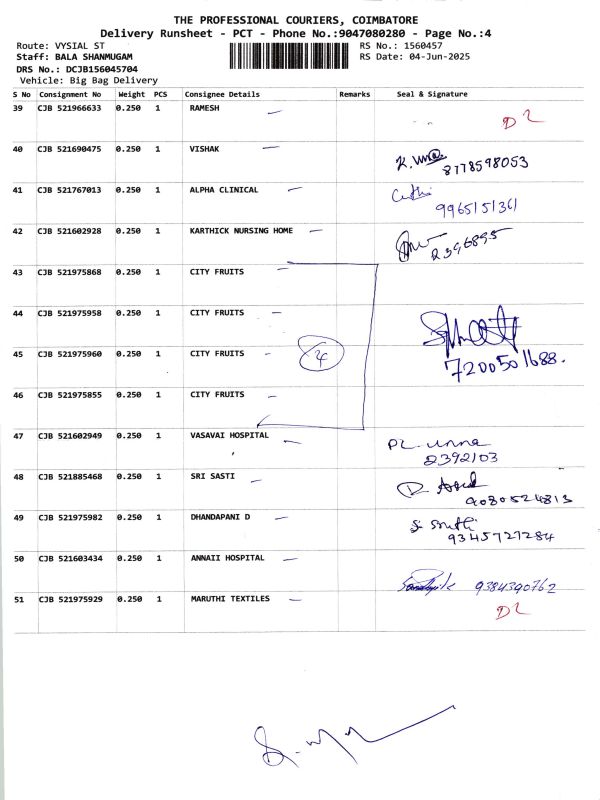 THE PROFESSIONAL COURIERS, COIMBATORE
Delivery Runsheet - PCT - Phone No.:9047080280 - Page No.:4
Route: VYSIAL ST RS No.: 1560457
Staff: BALA SHANMUGAM RS Date: 04-Jun-2025
DRS No.: DCJB156045704
Vehicle: Big Bag Delivery
S No Consignment No Weight PCS Consignee Details Remarks Seal & Signature
39 CJB 521966633 0.250 1 RAMESH D2
40 CJB 521690475 0.250 1 VISHAK
8778598053
41 CJB 521767013 0.250 1 ALPHA CLINICAL
9965151361
42 CJB 521602928 0.250 1 KARTHICK NURSING HOME
2396895
43 CJB 521975868 0.250 1 CITY FRUITS
44 CJB 521975958 0.250 1 CITY FRUITS
45 CJB 521975960 0.250 1 CITY FRUITS 4
7200501688.
46 CJB 521975855 0.250 1 CITY FRUITS
47 CJB 521602949 0.250 1 VASAVAI HOSPITAL
2392103
48 CJB 521885468 0.250 1 SRI SASTI
9080524813
49 CJB 521975982 0.250 1 DHANDAPANI D
9345727284
50 CJB 521603434 0.250 1 ANNAII HOSPITAL
9384390762
51 CJB 521975929 0.250 1 MARUTHI TEXTILES D2